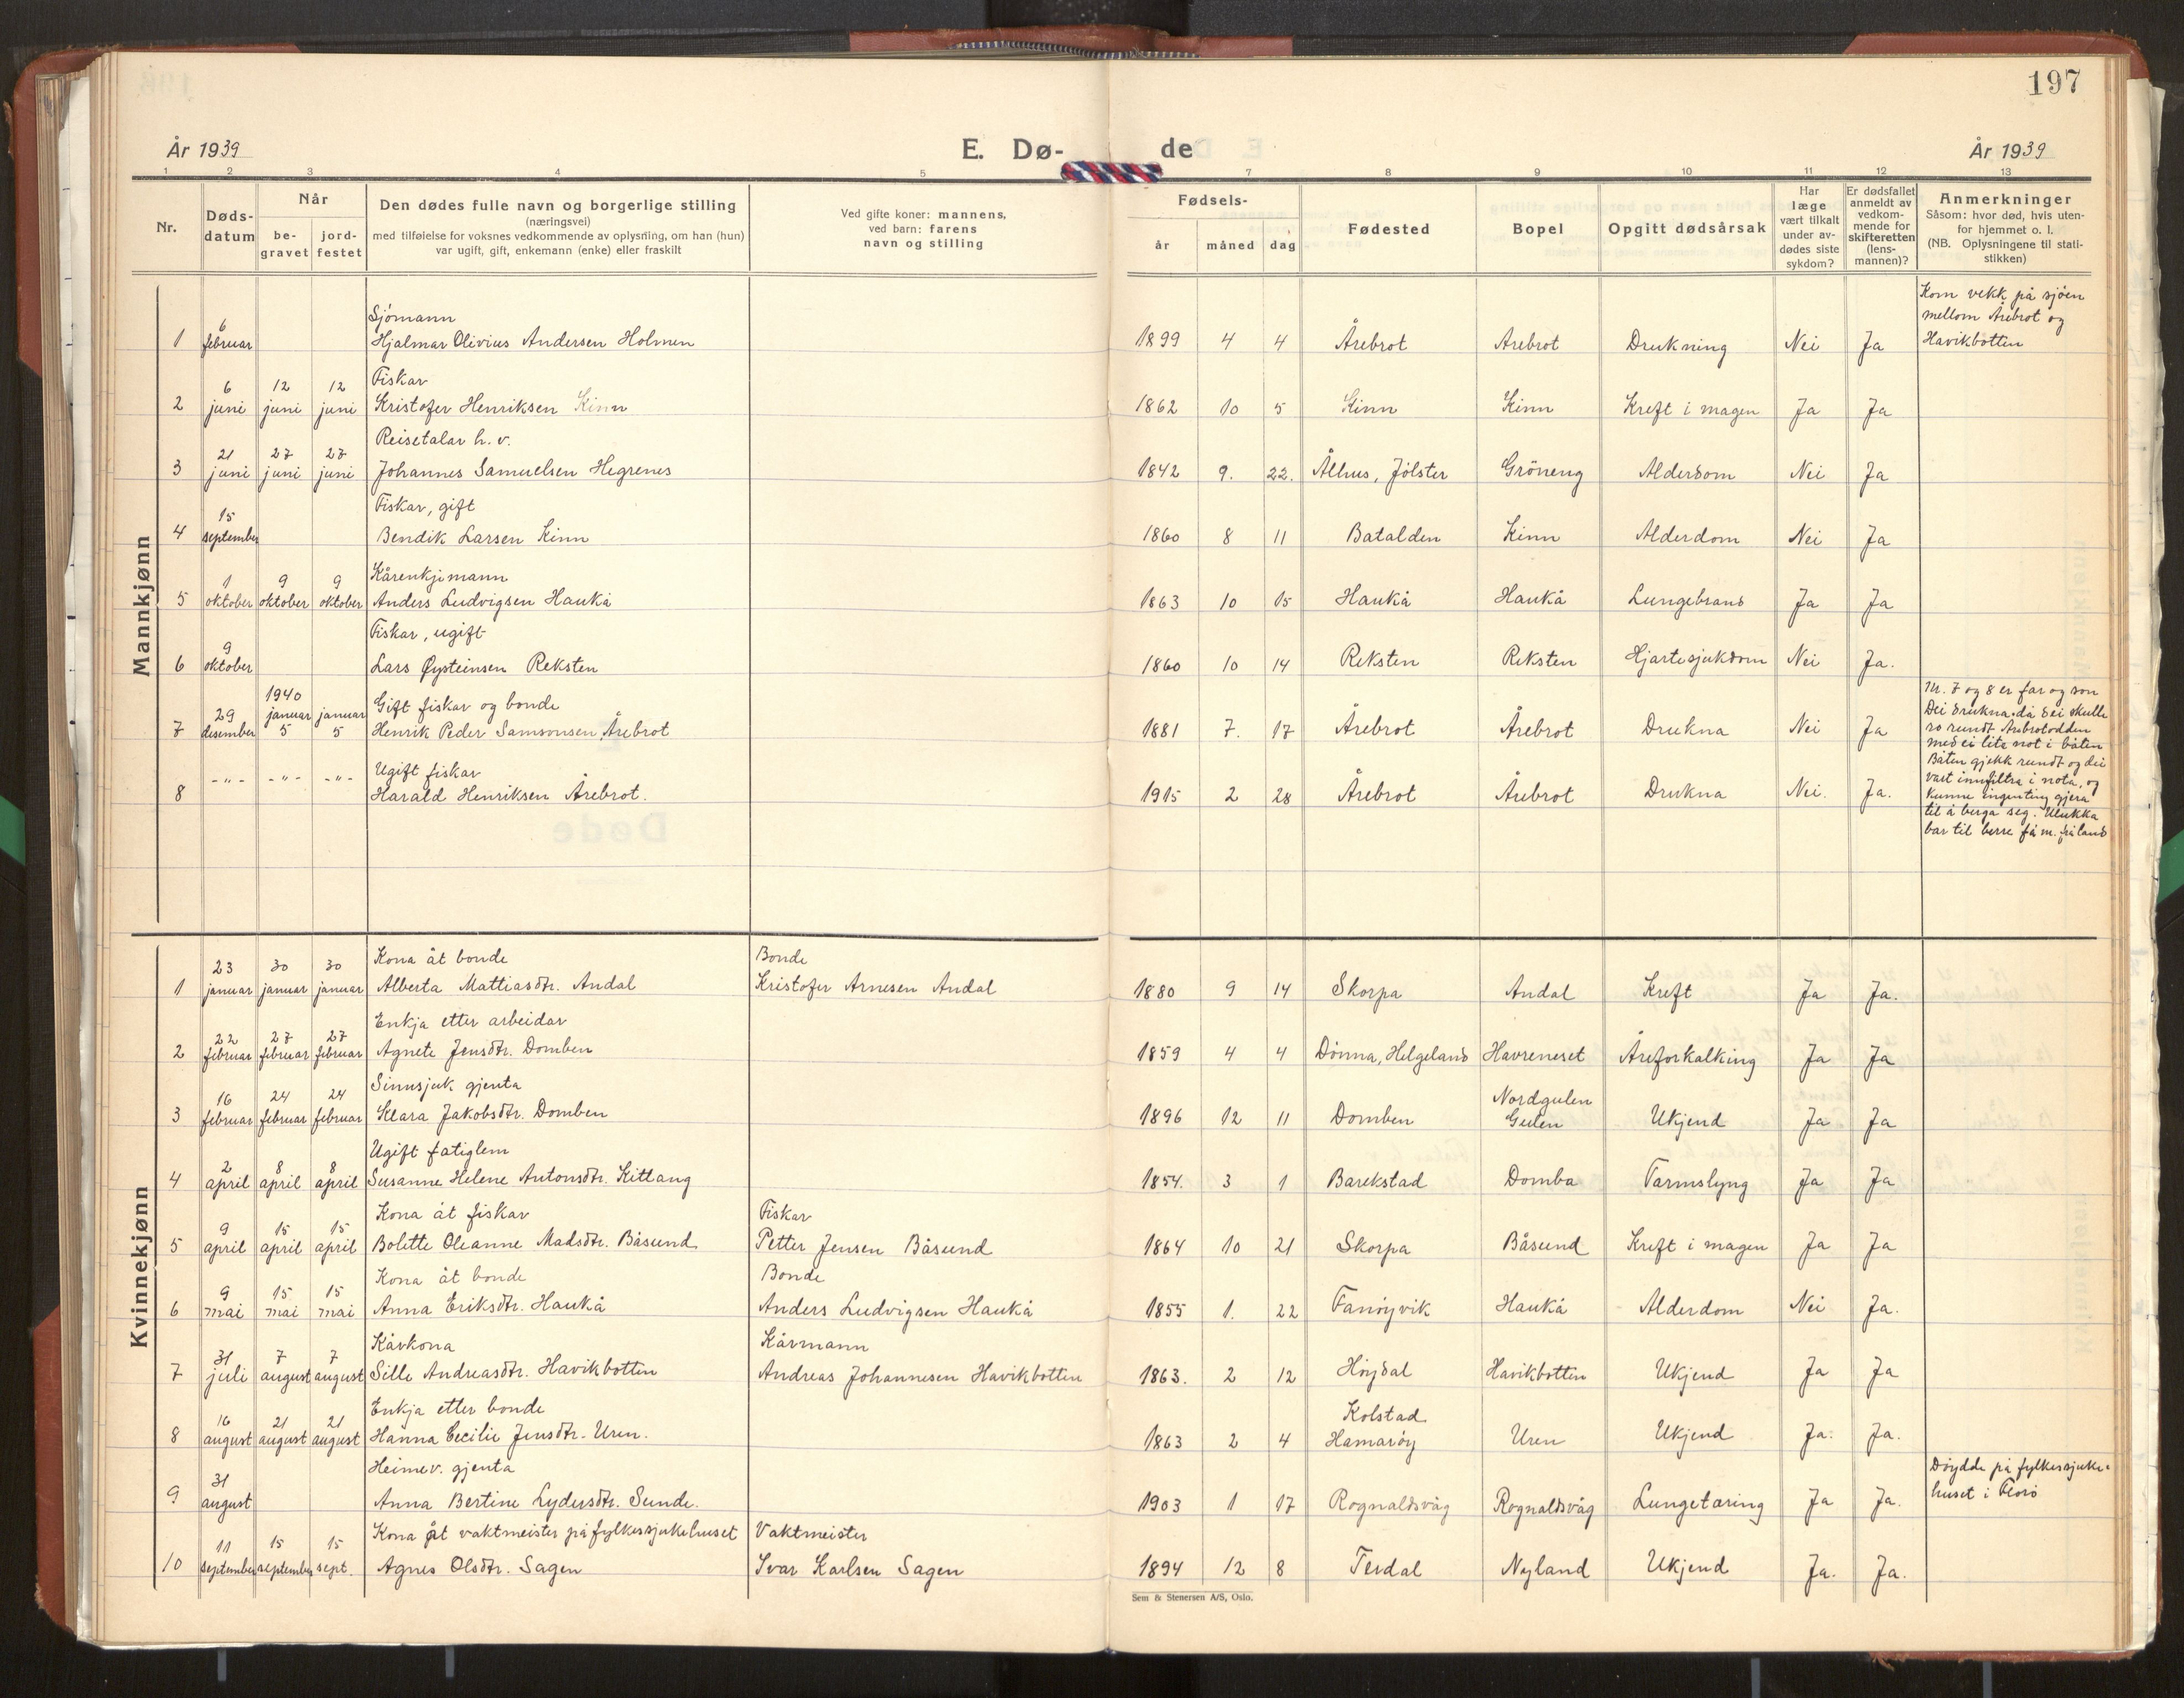 197
År 1939 E. Dø- de År 1939
1 2 3 4 5 7 8 9 10 11 12 13
Nr.
Døds-
datum
Når
be-
gravet
jord-
festet
Den dødes fulle navn og borgerlige stilling
(næringsvei)
med tilføielse for voksnes vedkommende av oplysning, om han (hun)
var ugift, gift, enkemann (enke) eller fraskilt
Ved gifte koner: mannens,
ved barn: farens
navn og stilling
Fødsels-
år måned dag
Fødested
Bopel
Opgitt dødsårsak
Har
læge
vært tilkalt
under av-
dødes siste
sykdom?
Er dødsfallet
anmeldt av
vedkom-
mende for
skifteretten
(lens-
mannen)?
Anmerkninger
Såsom: hvor død, hvis uten-
for hjemmet o. l.
(NB. Oplysningene til stati-
stikken)
Mannkjønn
6 Sjömann
1 februar Hjalmar Olivius Andersen Holmen 1899 4 4 Årebrot Årebrot Drukning Nei Ja
Kom vekk på sjöen
mellom Årebrot og
Havikbotten
6 12 12 Fiskar
2 juni juni juni Kristofer Henriksen Kinn 1862 10 5 Kinn Kinn Kreft i magen Ja Ja
21 27 27 Reisetalar h. v.
3 juni juni juni Johannes Samuelsen Hegrenes 1842 9. 22. Ålhus, Jölster Gröneng Alderdom Nei Ja
15 Fiskar, gift
4 september Bendik Larsen Kinn 1860 8 11 Batalden Kinn Alderdom Nei Ja
1 9 9 Kårenkjemann
5 oktober oktober oktober Anders Ludvigsen Haukå 1863 10 15 Haukå Haukå Lungebrand Ja Ja
9 Fiskar, ugift
6 oktober Lars Øysteinsen Reksten 1860 10 14 Reksten Reksten Hjartesjukdom Nei Ja.
1940
29 januar januar Gift fiskar og bonde
7 desember 5 5 Henrik Peder Samsonsen Årebrot 1881 7. 17 Årebrot Årebrot Drukna Nei Ja
-„- -„- -„- Ugift fiskar
8 Harald Henriksen Årebrot. 1915 2 28 Årebrot Årebrot Drukna Nei. Ja.
Nr. 7 og 8 er far og son
Dei drukna då dei skulle
ro rundt Årebrotodden
med ei lita not i båten
Båten gjekk rundt og dei
vart innfiltra i nota, og
kunne ingenting gjera
til å berga seg. Ulukka
bar til berre få m. frå land
Kvinnekjønn
23 30 30 Kona åt bonde Bonde
1 januar januar januar Alberta Mattiasdtr. Andal Kristofer Arnesen Andal 1880 9 14 Skorpa Andal Kreft Ja Ja.
22 27 27 Enkja etter arbeidar
2 februar februar februar Agnete Jensdtr. Domben 1859 4 4 Dönna, Helgeland Havreneset Åreforkalking Ja Ja
16 24 24 Sinnsjuk gjenta Nordgulen
3 februar februar februar Klara Jakobsdtr. Domben 1896 12 11 Domben Gulen Ukjend Ja Ja
2 8 8 Ugift fatiglem
4 april april april Susanne Helene Antonsdtr. Kittang 1854. 3 1 Barekstad Domba Tarmslyng Ja Ja
9 15 15 Kona åt fiskar Fiskar
5 april april april Bolette Oleanne Madsdtr. Båsund Petter Jensen Båsund 1864 10 21 Skorpa Båsund Kreft i magen Ja Ja
9 15 15 Kona åt bonde Bonde
6 mai mai mai Anna Eriksdtr. Haukå Anders Ludvigsen Haukå 1855 1. 22 Fanöyvik Haukå Alderdom Nei Ja.
31 7 7 Kårkona Kårmann
7 juli august august Sille Andreasdtr. Havikbotten Andreas Johannesen Havikbotten 1863. 2 12 Höydal Havikbotten Ukjend Ja Ja
16 21 21 Enkja etter bonde Kolstad
8 august august august Hanna Cecilie Jensdtr. Uren. 1863 2 4 Hamaröy Uren Ukjend Ja. Ja.
31 Heimev. gjenta
9 august Anna Bertine Lydersdtr. Sunde. 1903 1 17 Rognaldsvåg Rognaldsvåg Lungetæring Ja Ja.
Döydde på fylkessjuke-
huset i Florö
11 15 15 Kona åt vaktmeister på fylkessjukehuset Vaktmeister
10 september september sept. Agnes Olsdtr. Sagen Ivar Karlsen Sagen 1894 12 8 Terdal Nyland Ukjend Ja. Ja.
Sem & Stenersen A/S, Oslo.